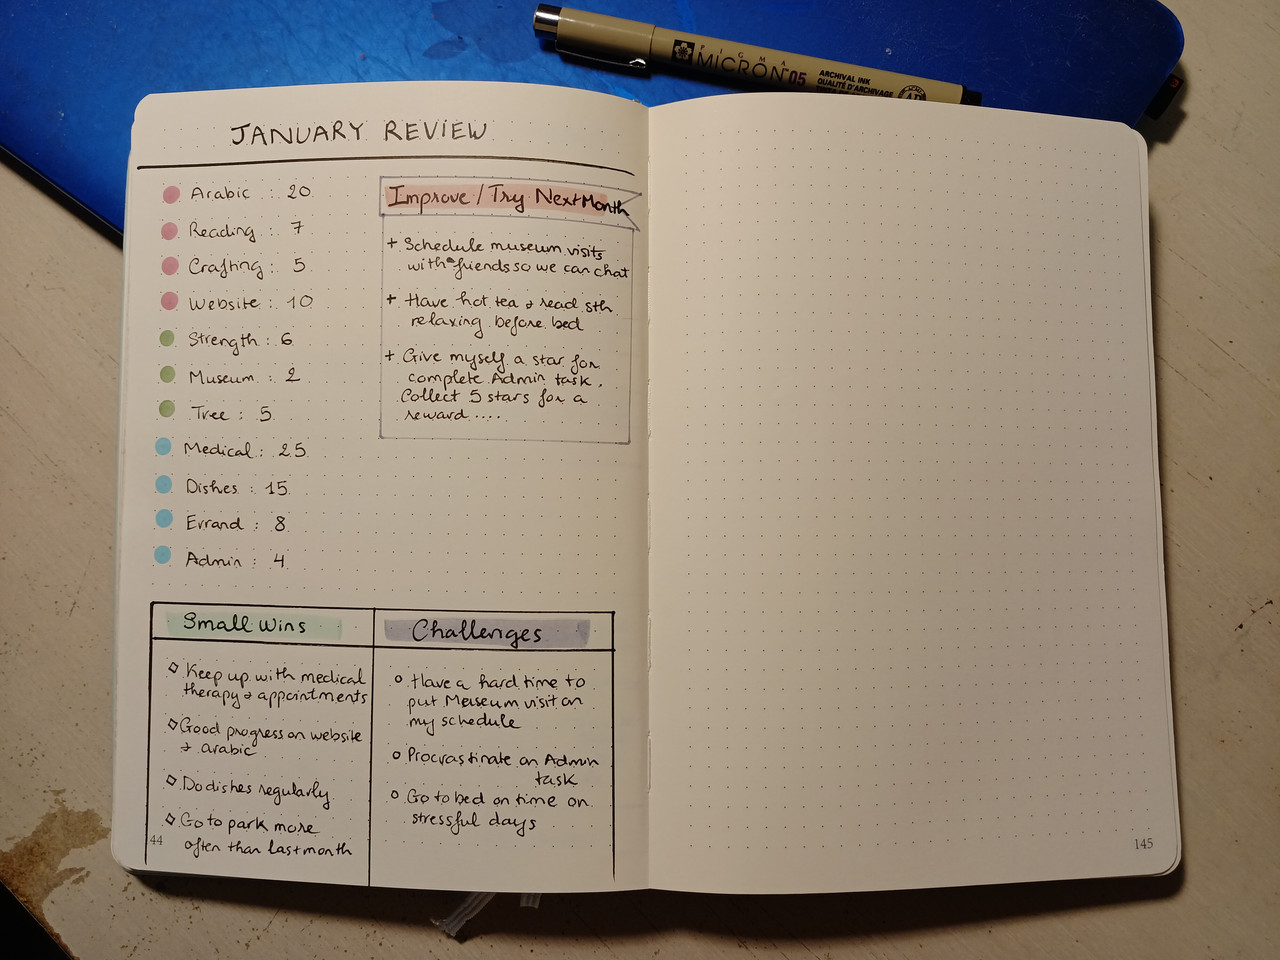 PIGMA
MICRON 05
ARCHIVAL INK
QUALITÉ D'ARCHIVAGE
JANUARY REVIEW
Arabic : 20
Reading : 7
Crafting : 5
Website : 10
Strength : 6
Museum : 2
Tree : 5
Medical : 25
Dishes : 15
Errand : 8
Admin : 4
Improve / Try Next Month
+ Schedule museum visits
with friends so we can chat
+ Have hot tea & read sth
relaxing before bed
+ Give myself a star for
complete Admin task.
Collect 5 stars for a
reward....
Small Wins
◇ Keep up with medical
therapy & appointments
◇ Good progress on website
& arabic
◇ Do dishes regularly
◇ Go to park more
often than last month
Challenges
○ Have a hard time to
put Museum visit on
my schedule
○ Procrastinate on Admin
task
○ Go to bed on time on
stressful days
44
145